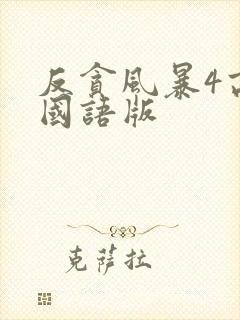 反貪風暴4
國語版
克薩拉